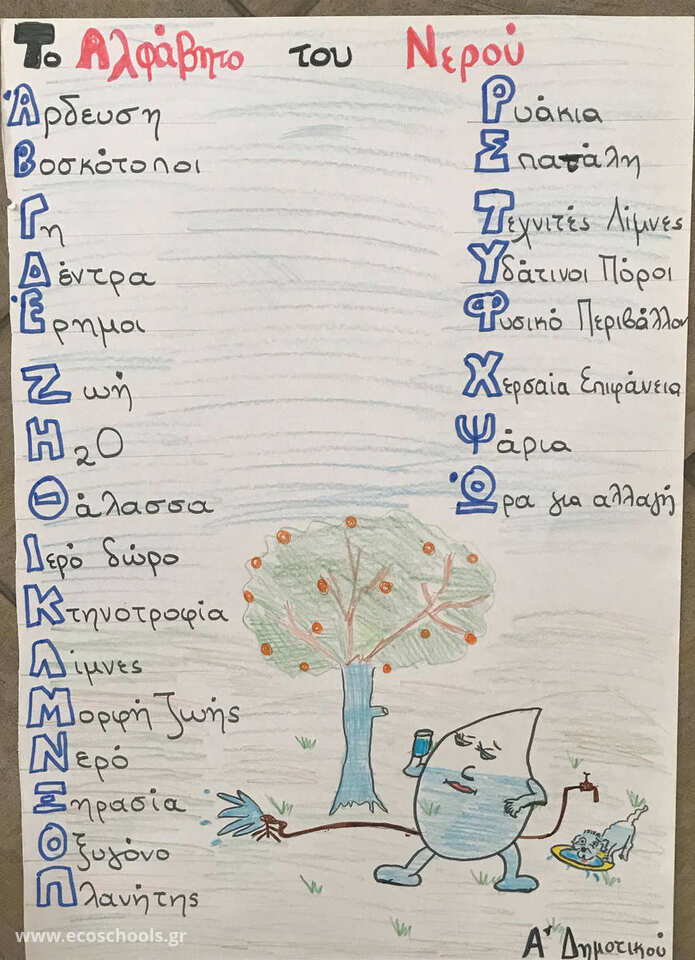 Το Αλφάβητο του Νερού
Άρδευση
Βοσκότοποι
Γη
Δέντρα
Έρημοι
Ζωή
H2O
Θάλασσα
Ιερό δώρο
Κτηνοτροφία
Λίμνες
Μορφή Ζωής
Νερό
Ξηρασία
Οξυγόνο
Πλανήτης
Ρυάκια
Σπατάλη
Τεχνιτές Λίμνες
Υδάτινοι Πόροι
Φυσικό Περιβάλλον
Χερσαία Επιφάνεια
Ψάρια
Ώρα για αλλαγή
www.ecoschools.gr
Α' Δημοτικού